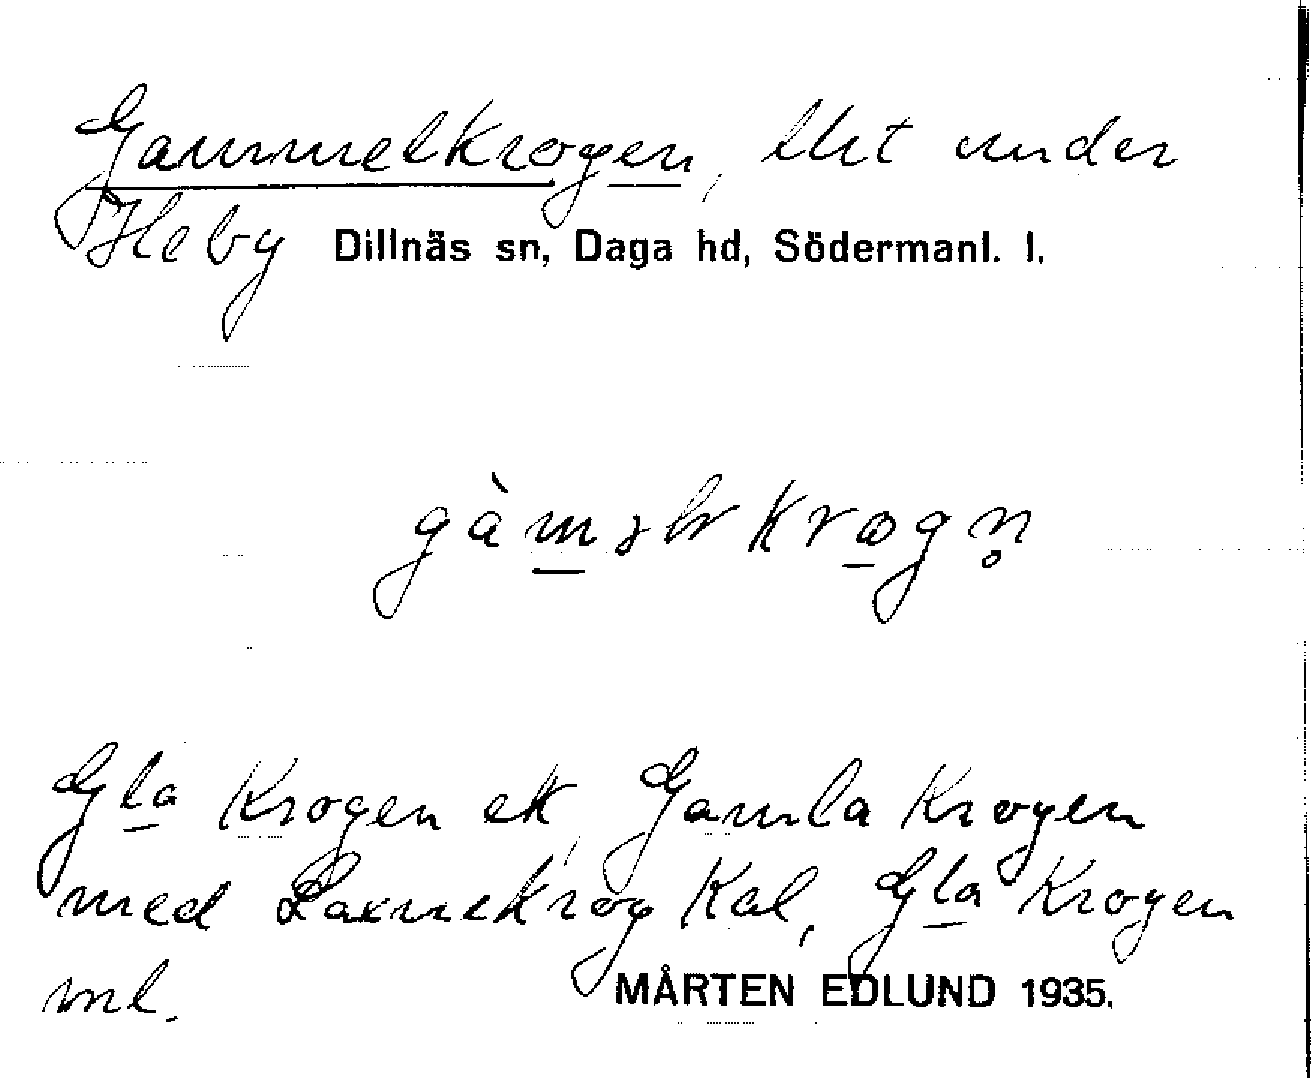 Gammelkrogen, lht under
Heby Dillnäs sn, Daga hd, Södermanl. l.
gàməlkrogn̥
Gla Krogen ek, Gamla Krogen
med Laxnekrog Kal, Gla Krogen
ml. MÅRTEN EDLUND 1935.